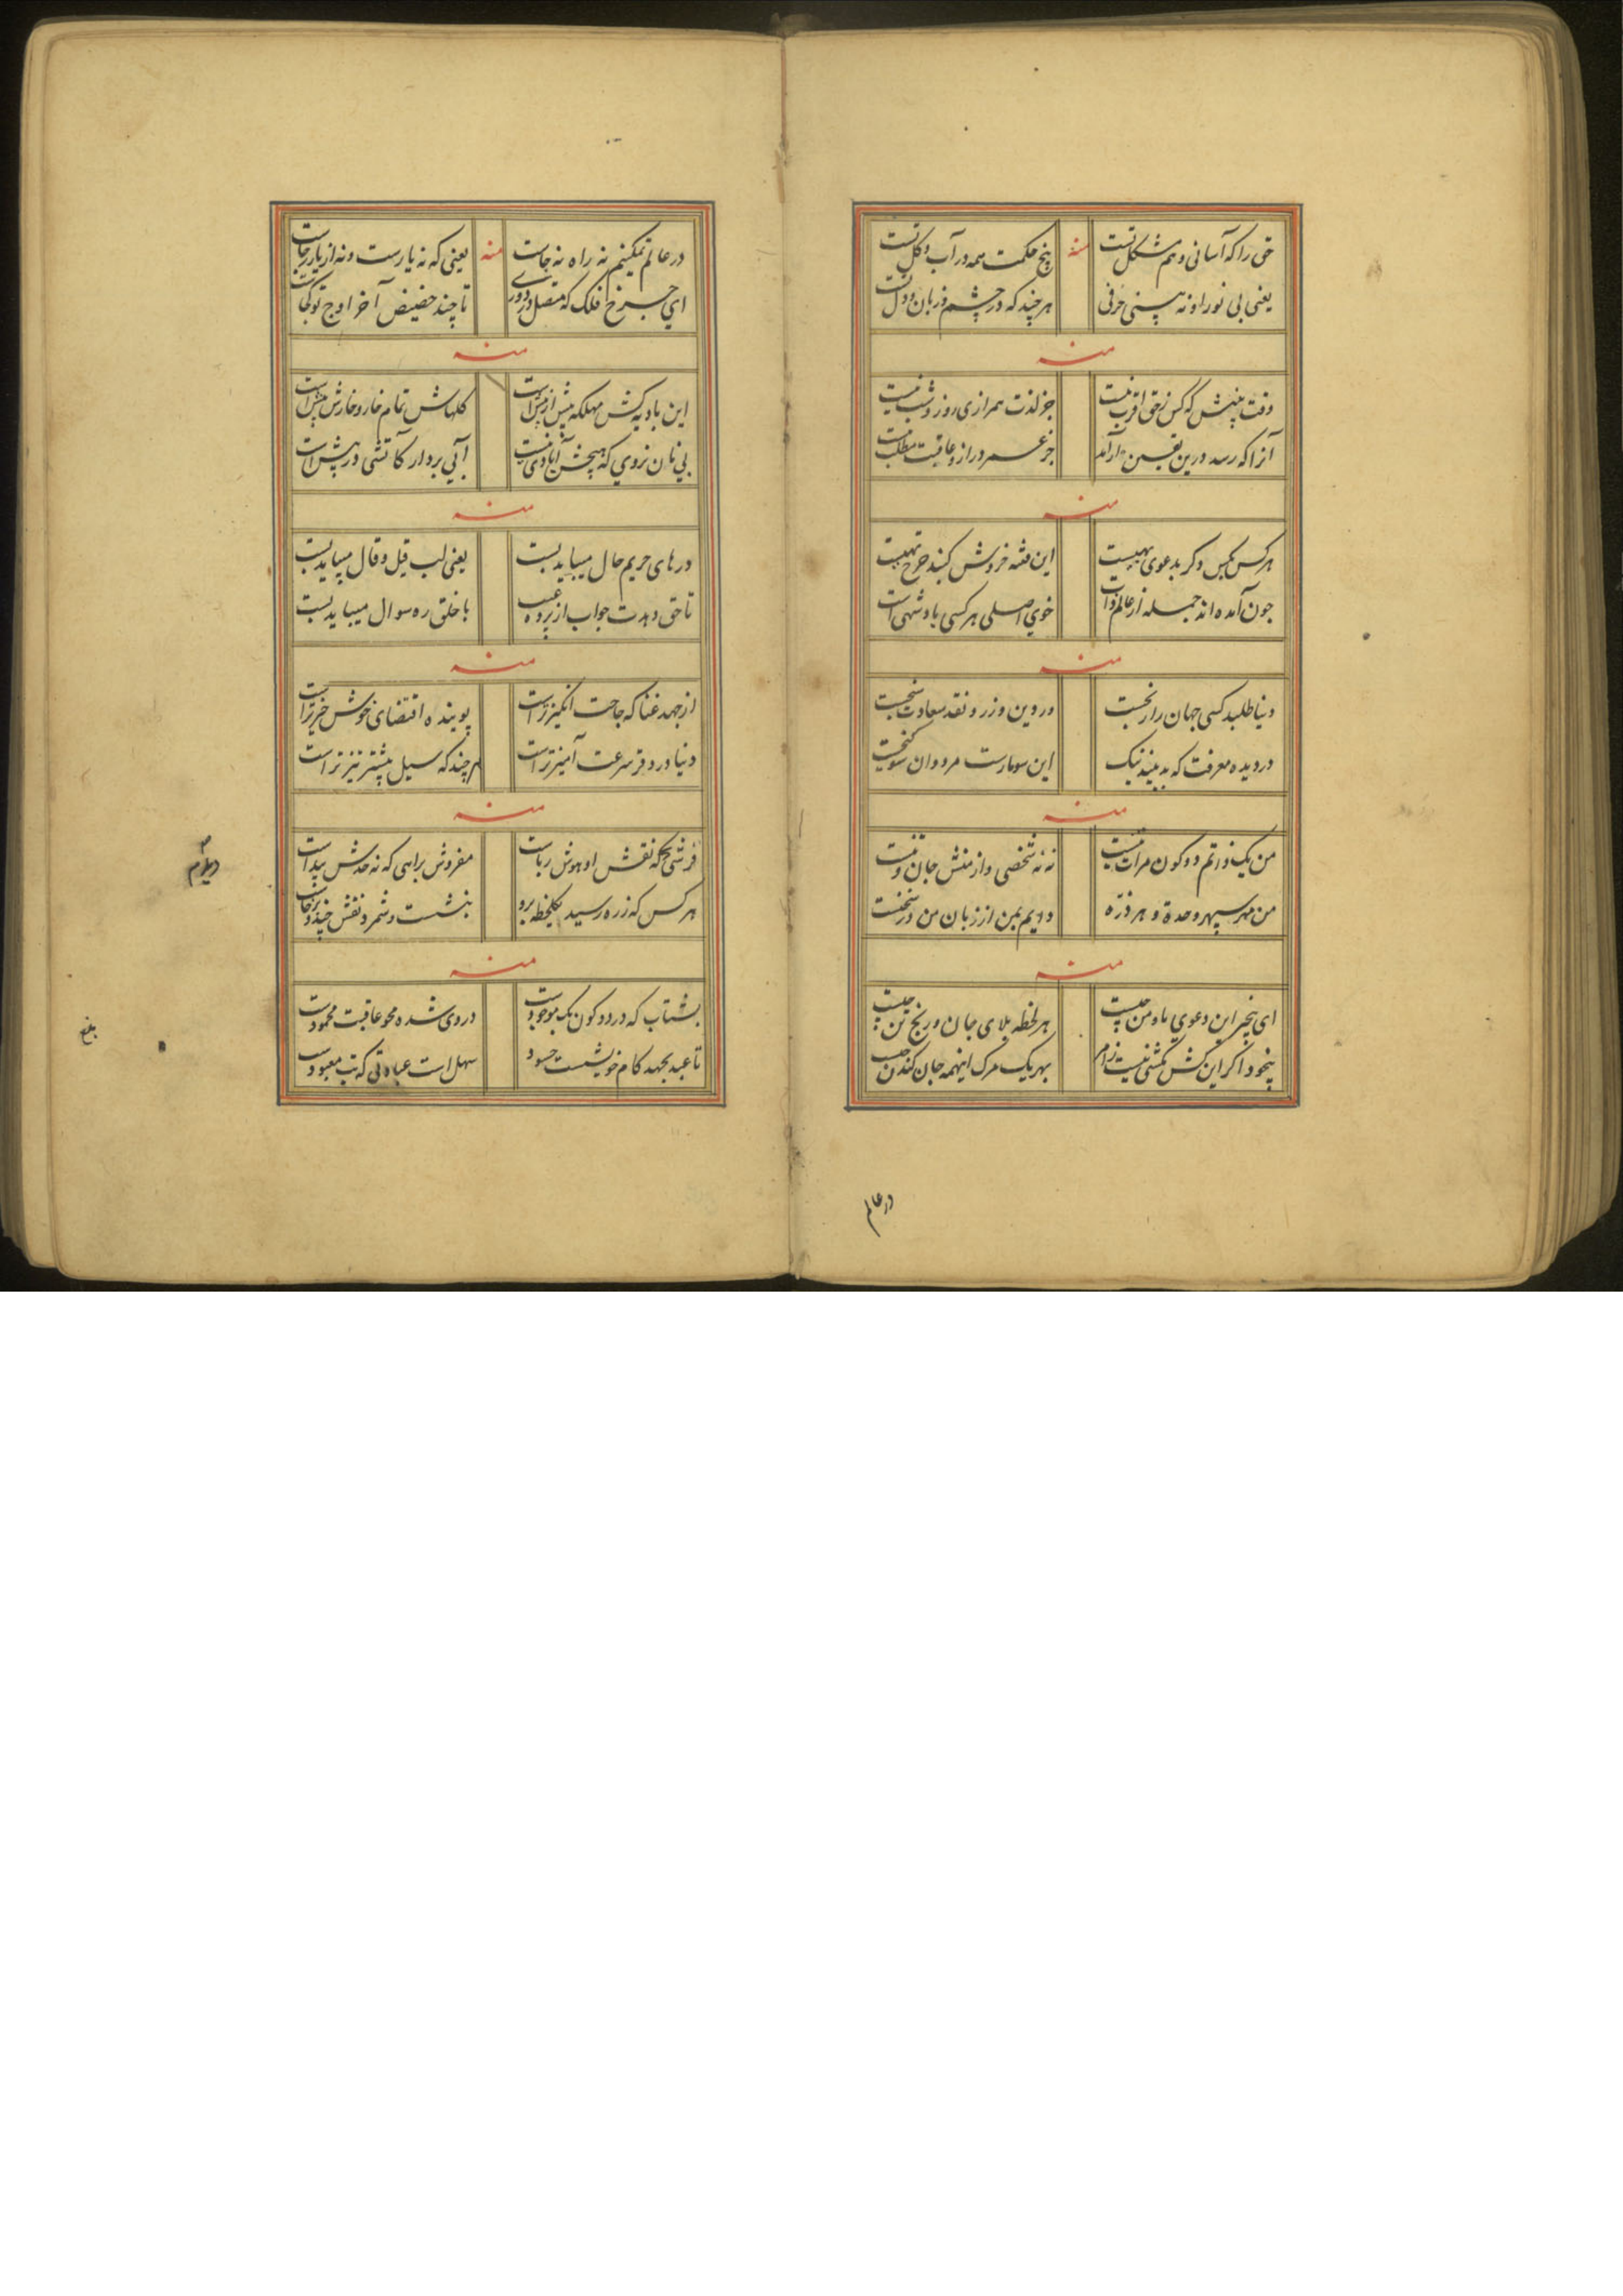 حق را که آسانی و هم مشکل تست منه پنج حکمت همه در آب و گل تست
یعنی بی نور او نه بینی حرفی هر چند که در چشم و زبان و دل تست
منه
وقت بینش که کس زحق اقرب نیست جز لذت همرازی روز و شب نیست
آنرا که رسد درین جز عمر دراز و عاقبت مطلب نیست
منه
هر کس بکس دکر بدعوی این فتنه فروش کند چرخ
چون آمده اند جمله از عالم ذات خوی اصلی هر کسی بادشهی است
منه
دنیا طلبد کسی جهان را در دین و زر و نقد سعادت
در دیده معرفت که بد بیند نیک این سو مارست مرد و ان سو
منه
من یک ذاتم دو کون مرات نه نه شخصی و از منش جان و
من مهر سپهر وحدة و هر ذره دایم بمن از زبان من در سخنست
منه
ای بیخبر این دعوی ما و من چیست هر لحظه بلای جان و رنج تن چیست
بیخود اکر این کش مکشی نیست بهر یک مرک اینهمه جان کندن چیست
در عالم
در عالم تمکینم نه راه نه جاست منه یعنی که نه یارست و نه از یار جداست
ای چرخ فلک که متصل در دوری تا چند حضیض آخر اوج تو کجاست
منه
این بادیه کش مهلکه بیش از پیش است کلهاش تمام خار و خارش نیش است
بی نان نروی که هیچش آبادی نیست آبی بردار کآتشی در پیش است
منه
درهای حریم حال میباید بست یعنی لب قیل و قال میباید بست
تا حق دهدت جواب از پرده غیب با خلق ره سوال میباید بست
منه
از جهد غنا که حاجت انکیزتر است پوینده اقتضای خوش خیزتر است
دنیا در و فر سرعت آمیزتر است هر چند که سیل بیشتر تیزتر است
منه
فرشی که نقش او هوش رباست مفروش براهی که نه حدش پیداست
هر کس که ز ره رسید یکلحظه برو بنشست و شمرد نقش چند و برخاست
منه
بشتاب که در دو کون یک موجودست در وی شده محو عاقبت محمودست
تا عبد بجهد کام خویشست حسود سهل است عبادتی که بت معبودست
بلغ